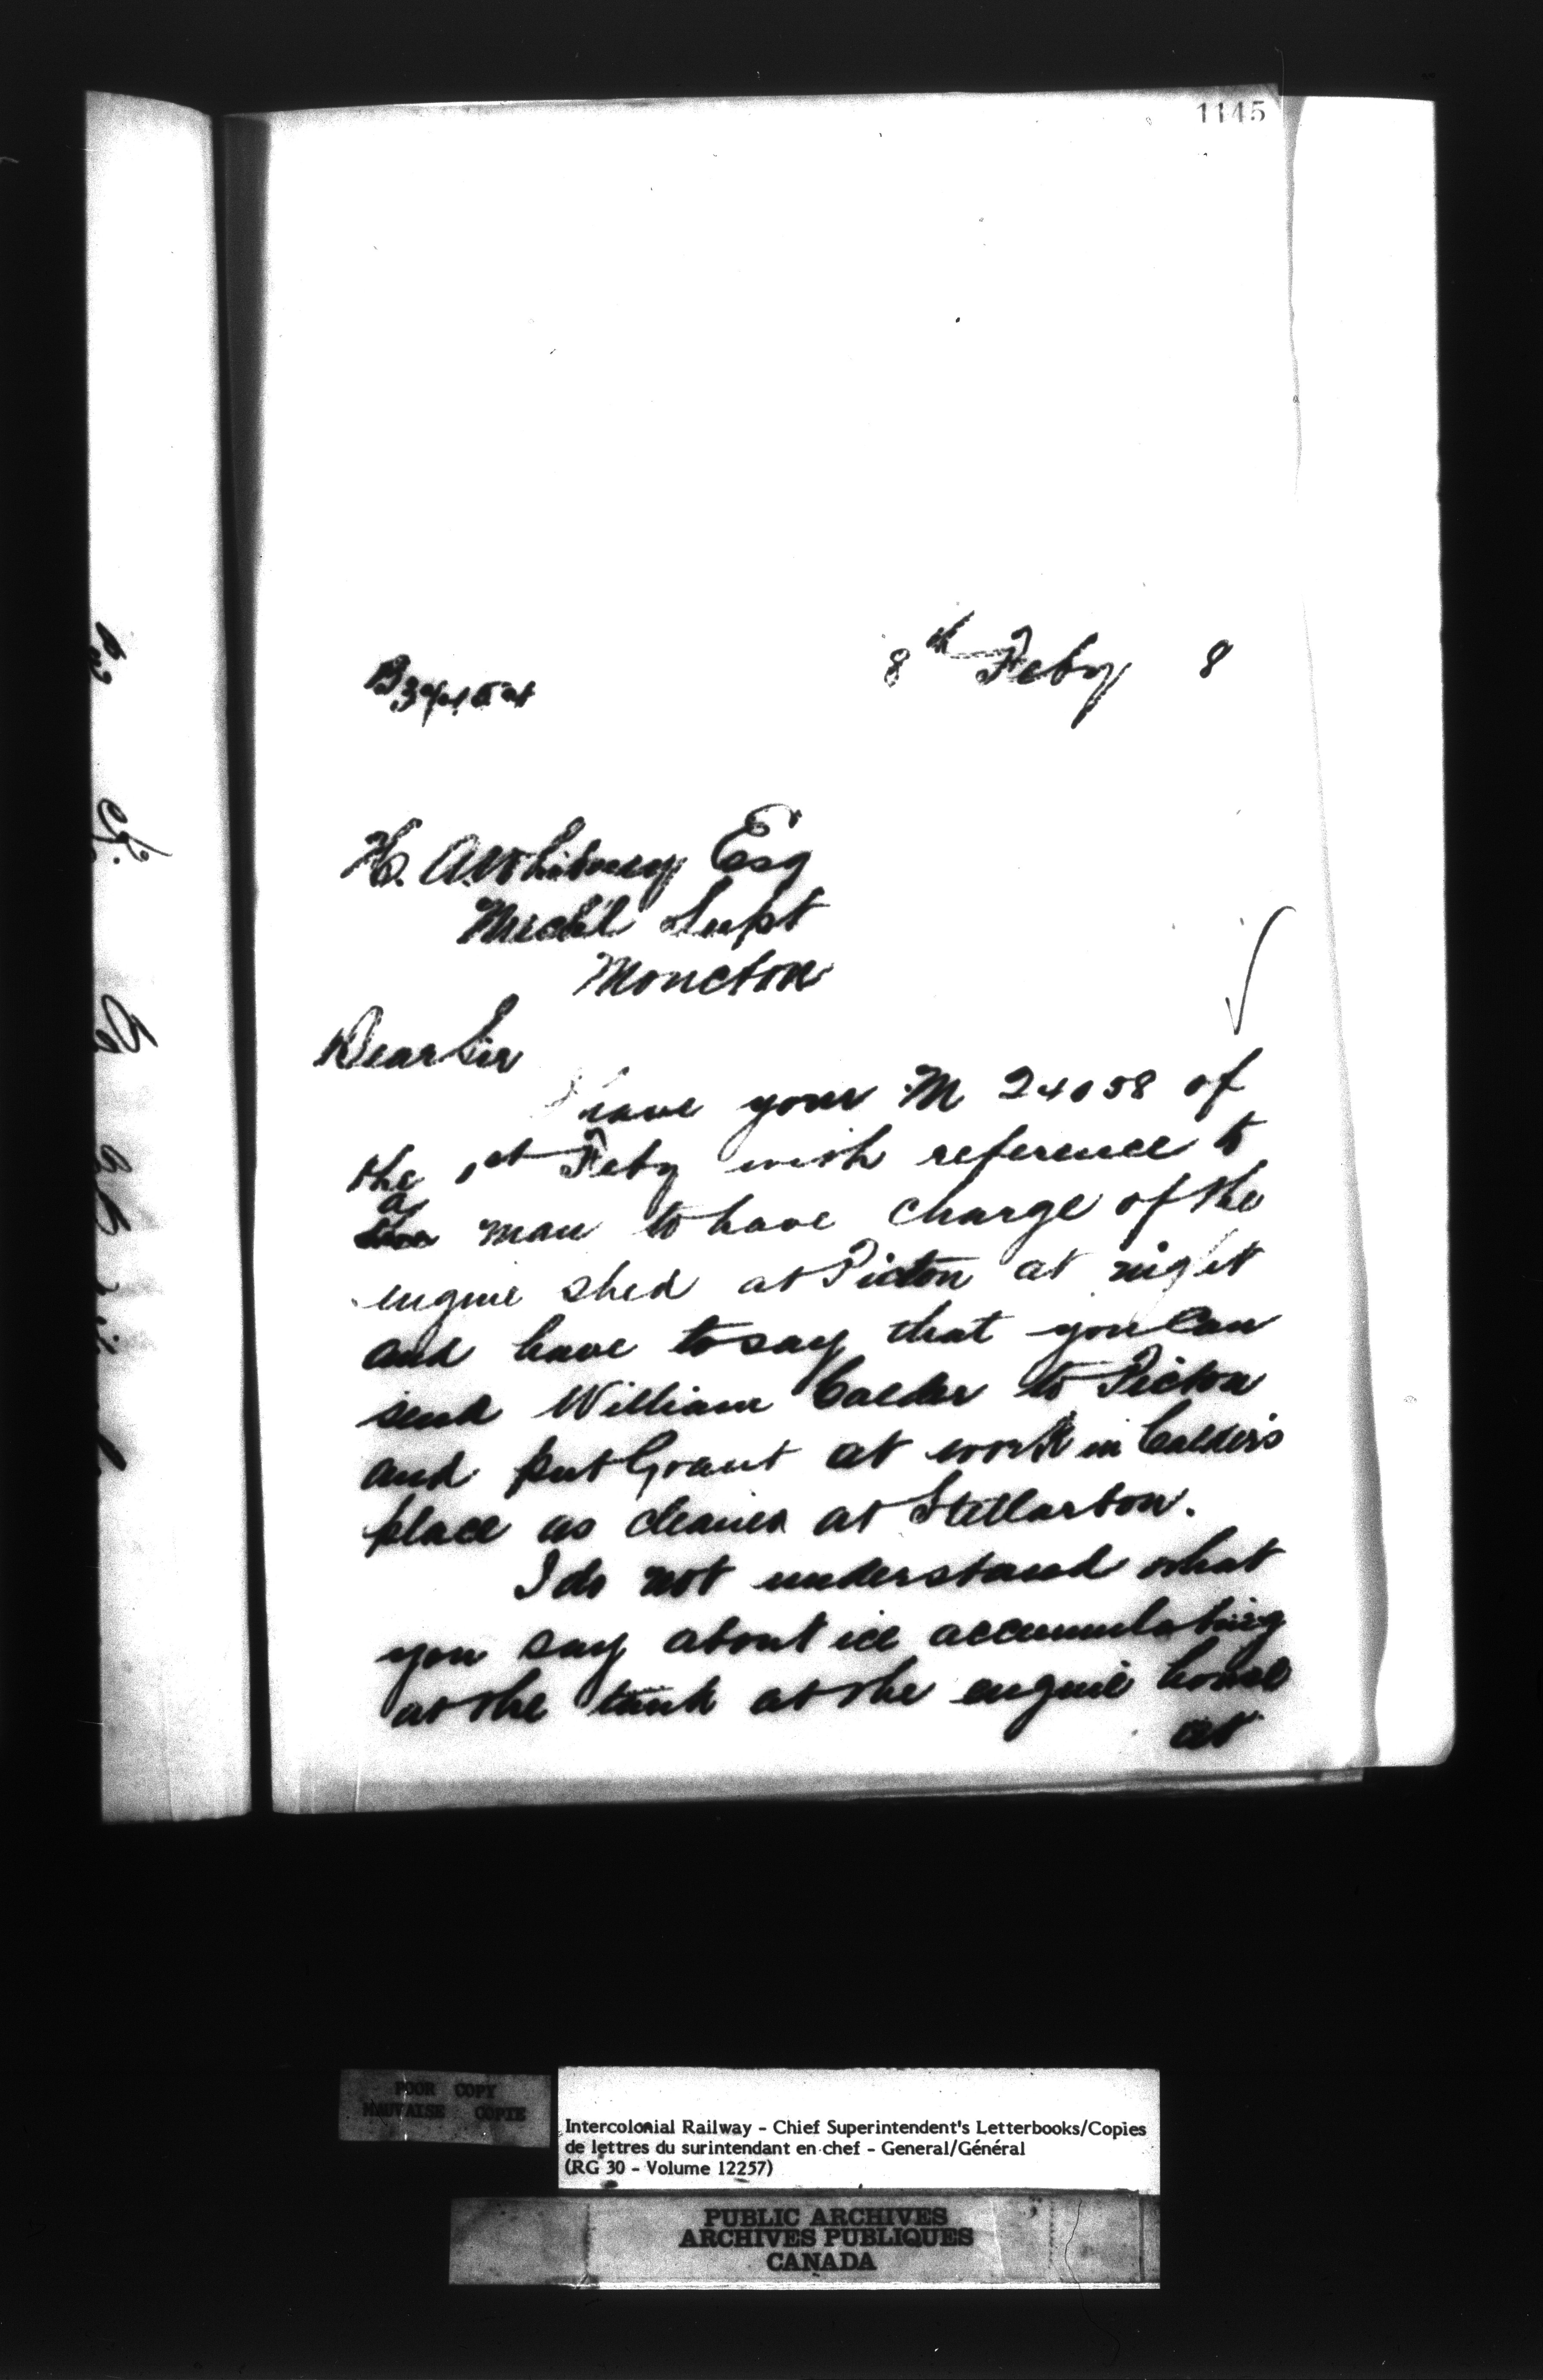 1145
8th Feby 8
H. A. Whitney Esq
Mech'l Supt
Moncton
Dear Sir
I have your M 24058 of
the 1st Feby with reference to
a man to have charge of the
engine shed at Pictou at night
and have to say that you can
send William Calder to Pictou
and put Grant at work in Calder's
place as cleaner at Stellarton.
I do not understand what
you say about ice accumulating
at the tank at the engine house
at
POOR COPY
MAUVAISE COPIE
Intercolonial Railway - Chief Superintendent's Letterbooks/Copies
de lettres du surintendant en chef - General/Général
(RG 30 - Volume 12257)
PUBLIC ARCHIVES
ARCHIVES PUBLIQUES
CANADA